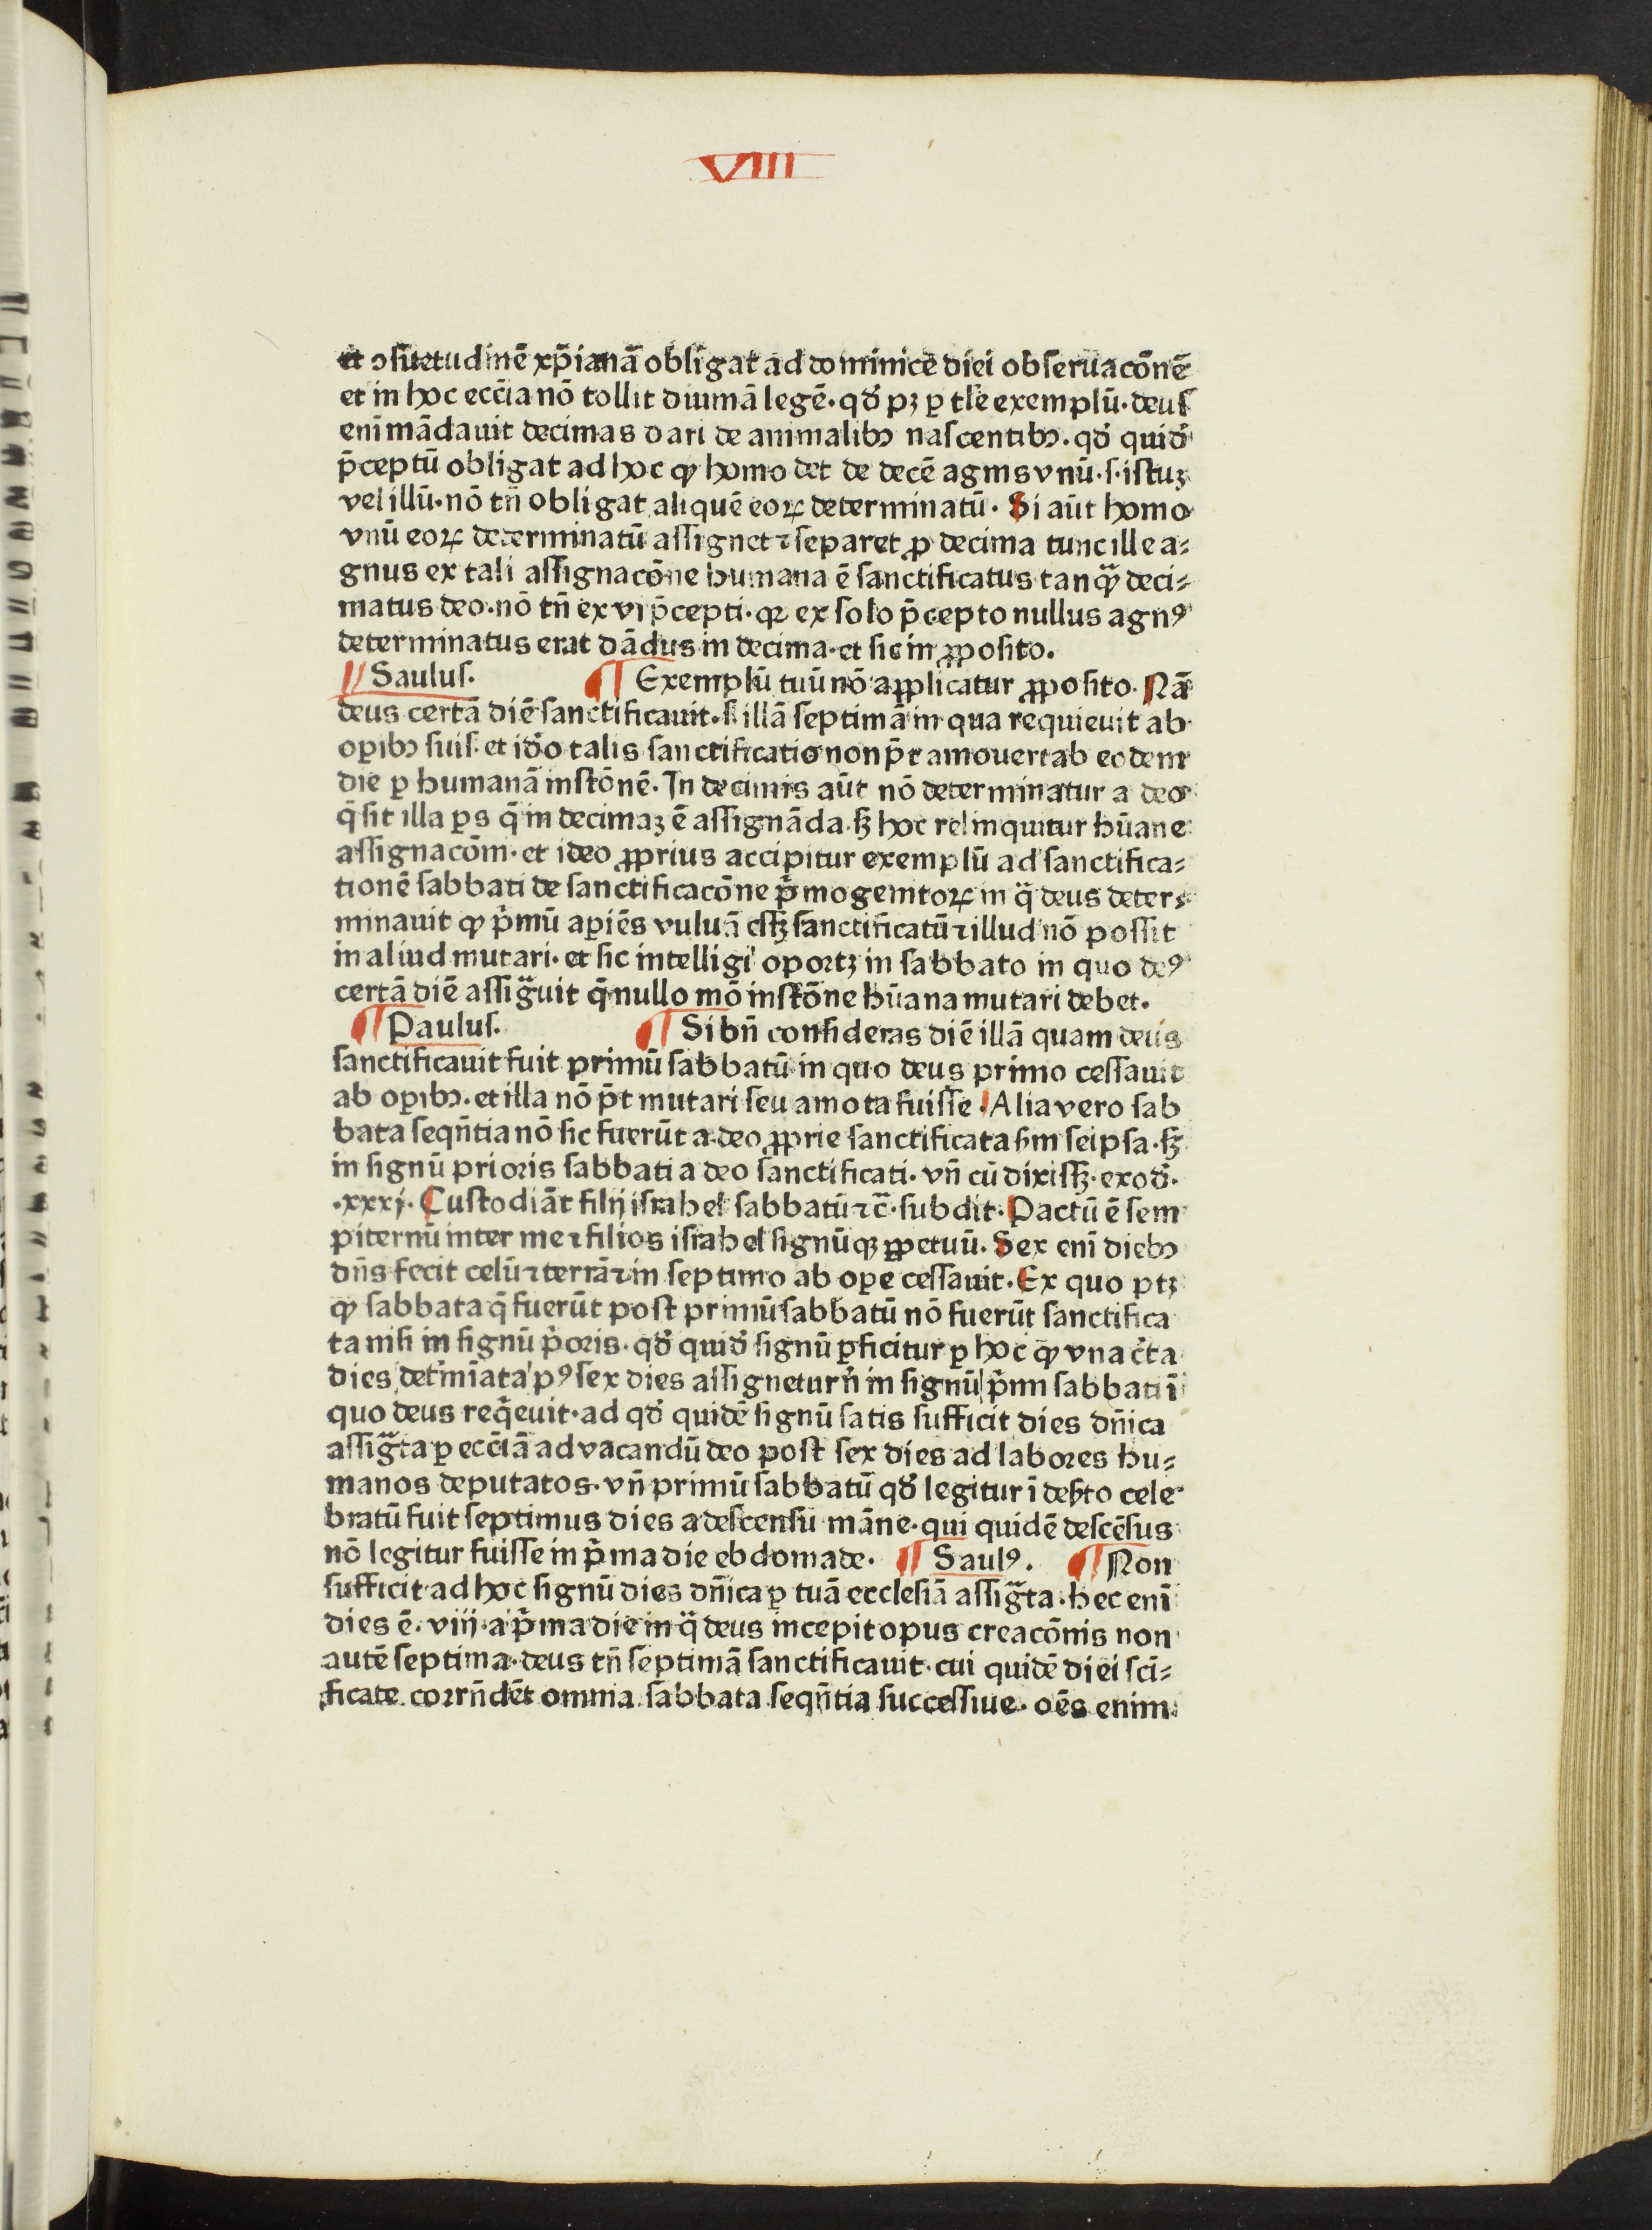 VIIII
et ꝯſuetudinē xp̄ianā obligat ad dominice diei obſeruacōnē
et in hoc ecc̄ia nō tollit diuinā legē. qd̓ pꝫ ꝑ tl̄e exemplū. deuſ
eni mādauit decimas dari de animalibꝫ naſcentibꝫ. qd̓ quid̓
p̄ceptū obligat ad hoc ꝙ homo det de decē agnis vnū. ſ. iſtuꝫ
vel illū. nō tn̄ obligat aliquē eoꝝ determinatū. Si aūt homo
vnū eoꝝ determinatū aſſignet ⁊ ſeparet ꝓ decima tunc ille a⸗
gnus ex tali aſſignacōne humana ē ſanctificatus tanqͣꝫ deci⸗
matus deo. nō tn̄ ex vi p̄cepti. qꝛ ex ſolo p̄cepto nullus agnꝰ
determinatus erat dādus in decima. et ſic in ꝓpoſito.
Saulus. ¶ Exemplū tuū nō applicatur ꝓpoſito. Nā
deus certā diē ſanctificauit. ſ. illā ſeptimā in qua requieuit ab
oꝑibꝫ ſuiſ. et id̓o talis ſanctificatio non p̄t amoueri ab eodem
die ꝑ humanā inſtōnē. In decimis aūt nō determinatur a deo
q̄ ſit illa ꝑs q̄ in decimaꝫ ē aſſignāda. ſꝫ hoc relinquitur hūane
aſſignacōni. et ideo ꝓprius accipitur exemplū ad ſanctifica⸗
tionē ſabbati de ſanctificacōne pͥmogenitoꝝ in qͣ deus deter⸗
minauit ꝙ pͥmū aꝑiēs vuluā eſſꝫ ſanctificatū ⁊ illud nō poſſit
in aliud mutari. et ſic intelligi oportꝫ in ſabbato in quo deꝰ
certā diē aſſigͣuit q̄ nullo mō inſtōne hūana mutari debet.
¶ Paulus. ¶ Si bn̄ conſideras diē illā quam deus
ſanctificauit fuit primū ſabbatū in quo deus primo ceſſauit
ab oꝑibꝫ. et illa nō p̄t mutari ſeu amota fuiſſe. Alia vero ſab
bata ſeqn̄tia nō ſic fuerūt a deo ꝓprie ſanctificata ẜm ſeipſa. ſꝫ
in ſignū prioris ſabbati a deo ſanctificati. vn̄ cū dixiſſꝫ. exod̓.
.xxxj. Cuſtodiāt filij iſrahel ſabbatū ⁊c̄. ſubdit. Pactū ē ſem
piternū inter me ⁊ filios iſrahel ſignūqꝫ ꝑpetuū. Sex eni diebꝫ
dn̄s fecit celū ⁊ terrā ⁊ in ſeptimo ab oꝑe ceſſauit. Ex quo ptꝫ
ꝙ ſabbata q̄ fuerūt poſt primū ſabbatū nō fuerūt ſanctifica
ta niſi in ſignū pͥoris. qd̓ quid̓ ſignū ꝑficitur ꝑ hoc ꝙ vna c̓ta
dies det̓miata pꝰ ſex dies aſſignetur in ſignū pͥmi ſabbati ī
quo deus reqͥeuit. ad qd̓ quidē ſignū ſatis ſufficit dies dn̄ica
aſſigͣta ꝑ ecc̄iā ad vacandū deo poſt ſex dies ad labores hu⸗
manos deputatos. vn̄ primū ſabbatū qd̓ legitur ī deẜto cele
bratū fuit ſeptimus dies a deſcenſu māne. qui quidē deſcēſus
nō legitur fuiſſe in pͥma die ebdomade. ¶ Saulꝰ. ¶ Non
ſufficit ad hoc ſignū dies dn̄ica ꝑ tuā eccleſiā aſſigͣta. hec eni
dies ē. viij. a pͥma die in qͣ deus incepit opus creacōnis non
autē ſeptima. deus tn̄ ſeptimā ſanctificauit. cui quidē diei ſci⸗
ficate corrn̄dēt omnia ſabbata ſeqn̄tia ſucceſſiue. oēs enim